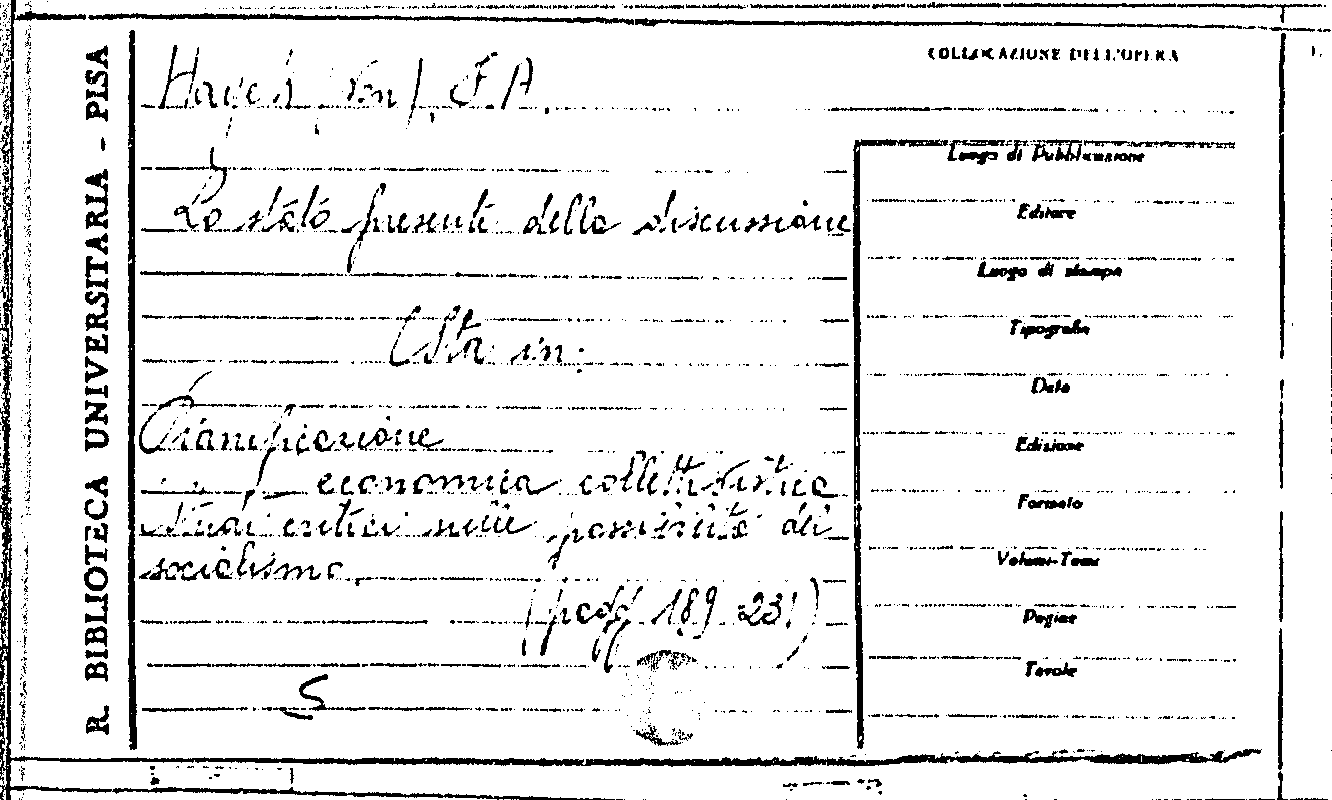 R. BIBLIOTECA UNIVERSITARIA - PISA
COLLOCAZIONE DELL'OPERA
Hayek (von), F. A.
Lo stato presente della discussione
(Sta in:
Pianificazione
economica collettivistica
Studi critici sulle possibilità del
socialismo.
(pagg 189 231)
S
Luogo di Pubblicazione
Editore
Luogo di stampa
Tipografia
Data
Edizione
Formato
Volumi-Tomi
Pagine
Tavole